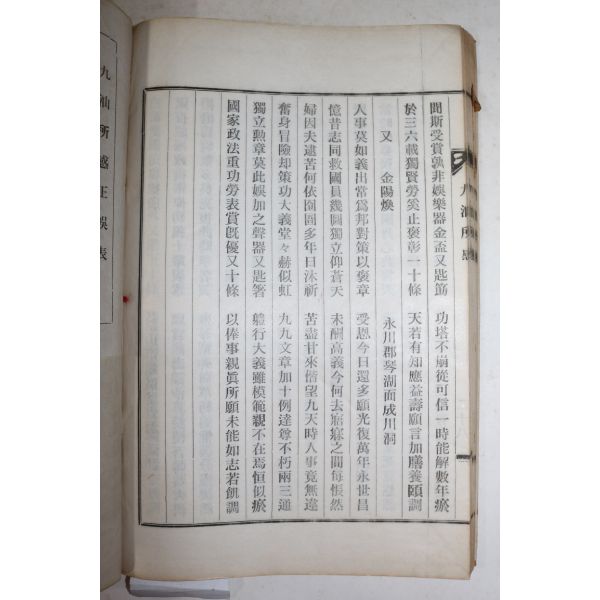 聞斯受賞孰非娛樂器金盃又匙筯 功塔不崩從可信一時能解數年瘀
於三六載獨賢勞奚止褒彰一十條 天若有知應益壽願言加膳養頤調
又 金陽煥 永川郡琴湖面成川洞
人事莫如義出常爲邦對策以褒章 受恩今日還多願光復萬年永世昌
憶昔志同救國員幾圖獨立仰蒼天 未酬高義今何去寤寐之間每悵然
婦因夫逮苦何依囹圄多年日沐祈 苦盡甘來偕望九天時人事竟無違
奮身冒險却策功大義堂々赫似虹 九九文章加十例達尊不朽兩三通
獨立勳章莫此娛加之聲器又匙箸 軆行大義雖模範親不在焉恒似瘀
國家政法重功勞表賞旣優又十條 以俸事親眞所願未能如志若飢調
九汕所感正誤表